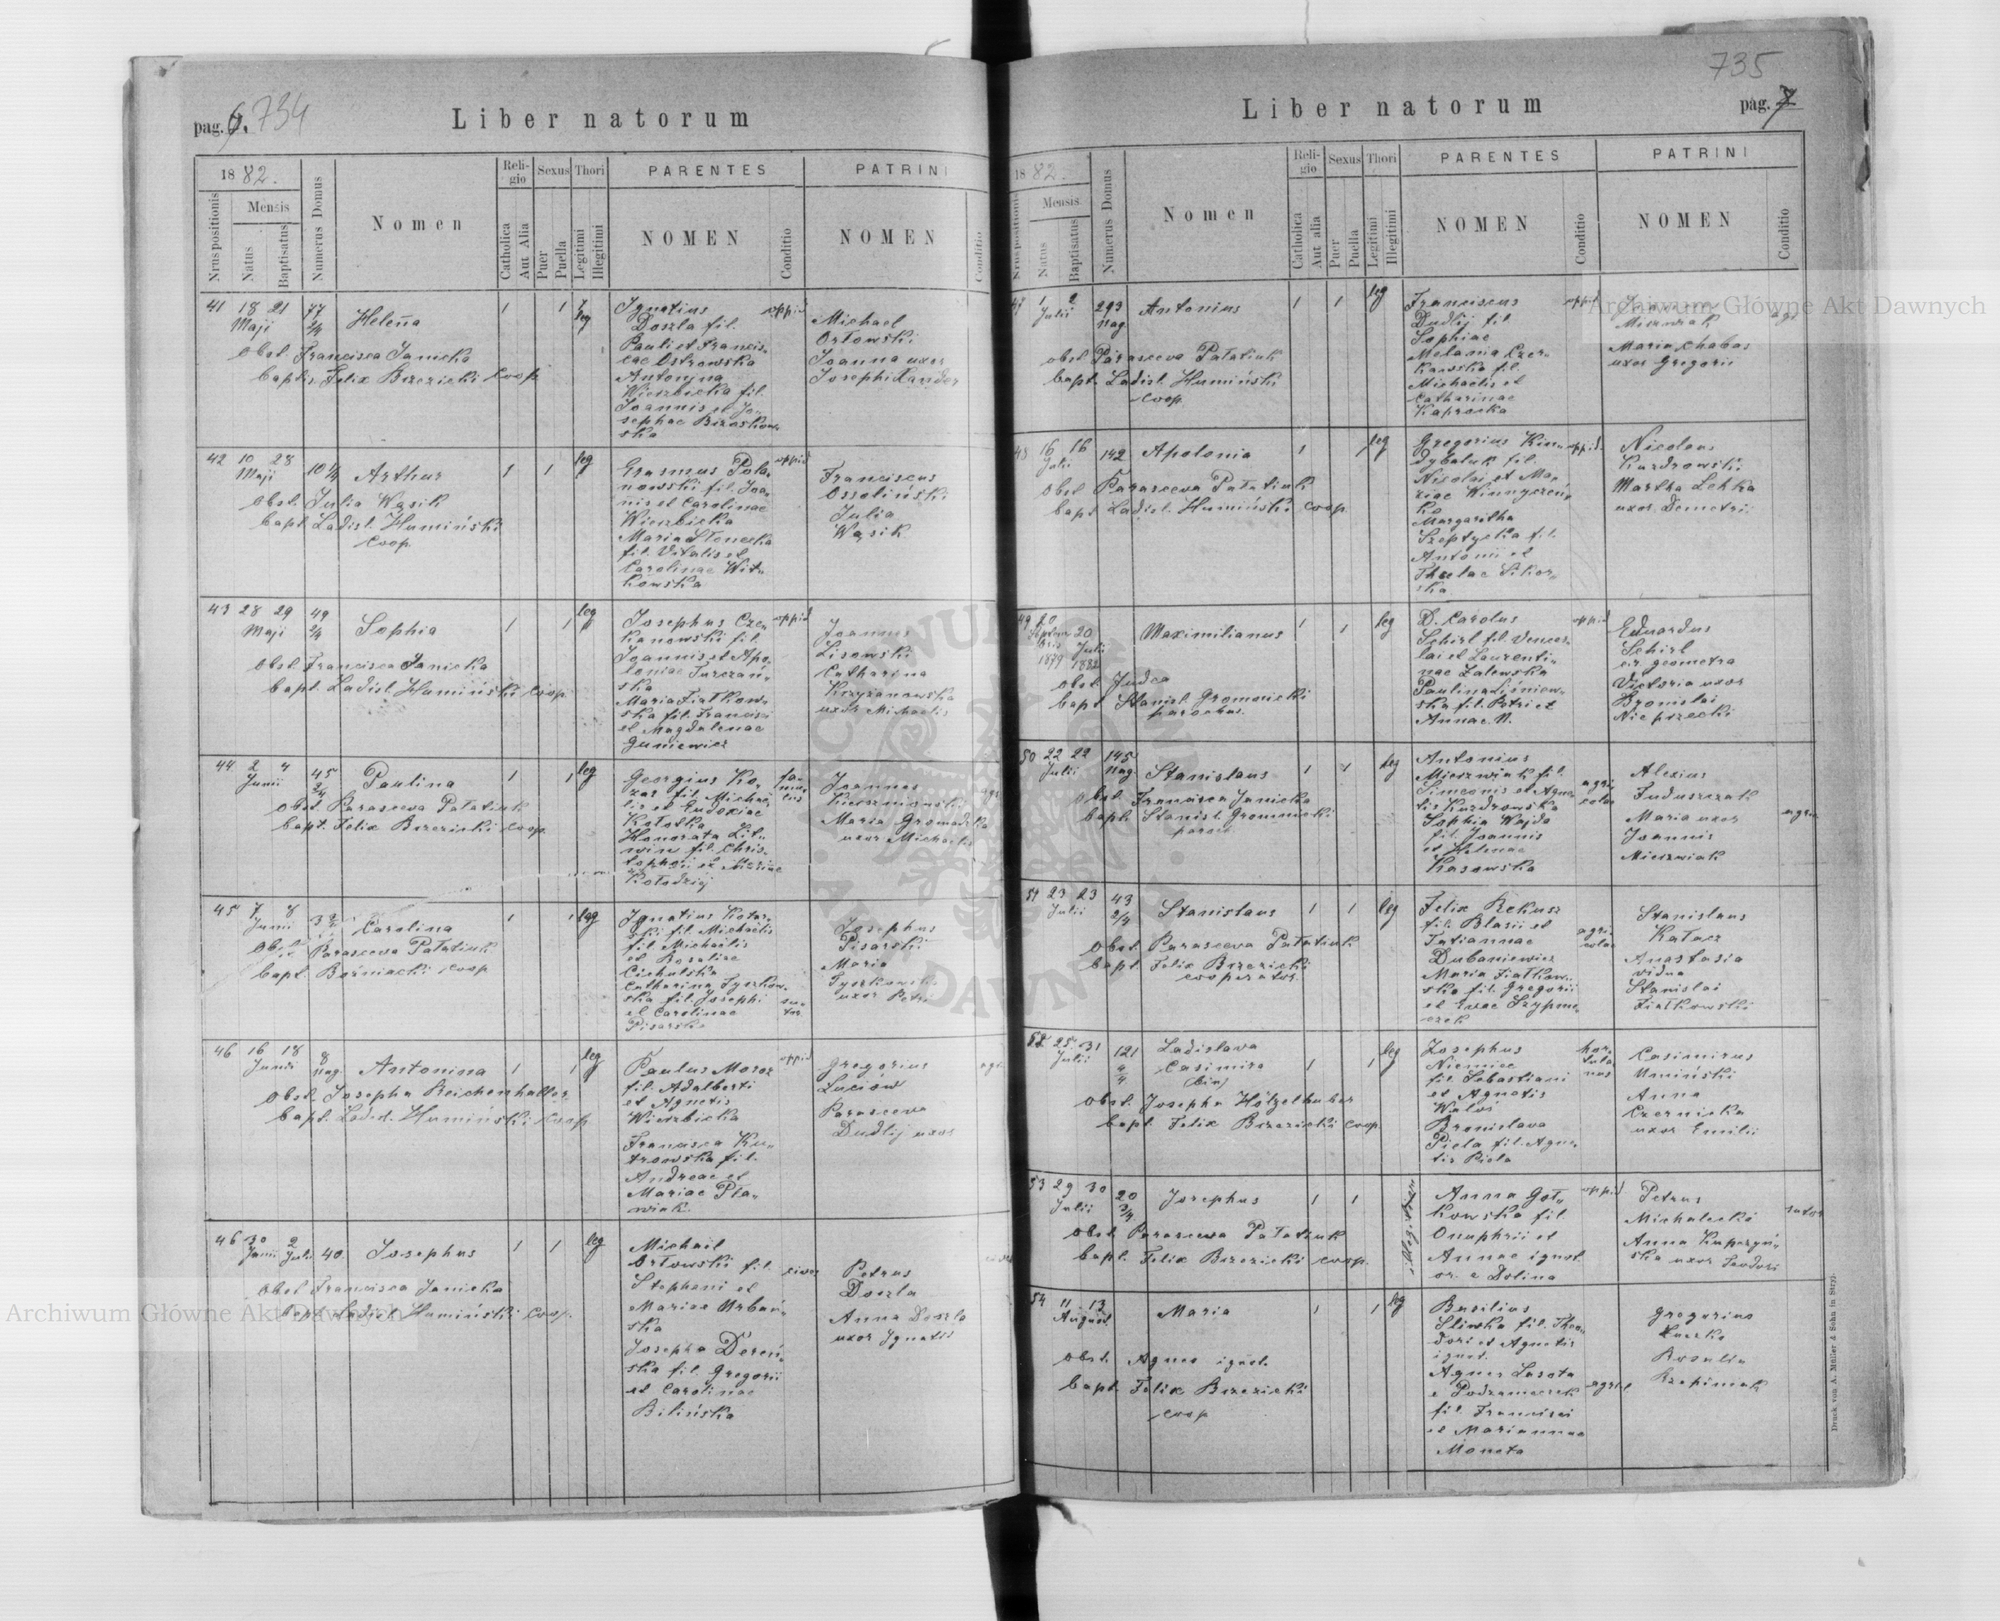 pag. 6. 734
Liber natorum
1882.
Nrus positionis
Mensis
Natus
Baptisatus
Numerus Domus
Nomen
Religio
Catholica
Aut Alia
Sexus
Puer
Puella
Thori
Legitimi
Illegitimi
PARENTES
NOMEN
Conditio
PATRINI
NOMEN
Conditio
41 18 21 77
Maji 2/4
Helena
1 1 leg
obst. Francisca Janicka
baptis. Felix Brzezicki coop
Ignatius
Doszla fil.
Pauli et Francis-
cae Ostrowska
Antonina
Wierzbicka fil.
Joannis et Jo-
sephae Brzoskow-
ska
oppid
Michael
Orłowski
Joanna uxor
Josephi Xander
42 10 28 10 1/4
Maji
Arthur
1 1 leg
obst. Julia Wąsik
bapt. Ladisl. Humiński
coop.
Erasmus Pola-
nowski fil. Joa-
nis et Carolinae
Wierzbicka
Maria Słonecka
fil. Vitalis et
Carolinae Wit-
kowska
oppid
Franciscus
Ossoliński
Julia
Wąsik
43 28 29 49
Maji 2/4
Sophia
1 1 leg
obst. Francisca Janicka
bapt. Ladisl. Humiński coop.
Josephus Cze-
kanowski fil.
Joannis et Apo-
loniae Turczań-
ska
Maria Fiatkow-
ska fil. Francisci
et Magdalenae
Guniewicz
oppid
Joannes
Lisowski
Catharina
Krzyżanowska
uxor Michaelis
44 2 4 45
Junii 2/4
Paulina
1 1 leg
obst. Parasceva Pałatiuk
bapt. Felix Brzezicki coop.
Georgius Ko-
zar fil. Michae-
lis et Eudoxiae
Honorata Lit-
win fil. Chris-
tophori et Mariae
Kołodzij
fa-
mu-
lus
Joannes
Maria Gromadzka
uxor Michaelis
45 7 8
Junii
Carolina
1 1 leg
obst. Parasceva Pałatiuk
bapt. Bośniacki coop
Ignatius Kotar-
ski fil. Michaelis
fil. Michaelis
et Rosaliae
Cichulska
Catharina Tyszkow-
ska fil. Josephi
et Carolinae
Pisarska
su-
tor
Josephus
Pisarski
Maria
Tyszkowska
uxor Petri
46 16 18 8
Junii nag
Antonina
1 1 leg
obst. Josepha Reichenhalter
bapt. Ladisl. Humiński coop
Paulus Moroz
fil. Adalberti
et Agnetis
Wierzbicka
Francisca Ku-
trowska fil.
Andreae et
Mariae Pła-
wiak
oppid
Gregorius
Luciów
Parasceva
Dudlij uxor
46 30 2 40
Junii Julii
Josephus
1 1 leg
obst. Francisca Janicka
bapt. Ladisl. Humiński coop.
Michail
Orłowski fil.
Stephani et
Mariae Urbań-
ska
Josepha Dereń-
ska fil. Gregorii
et Carolinae
Bilińska
civis
Petrus
Doszla
Anna Doszla
uxor Ignatii
735
Liber natorum
pag. 7
1882.
Nrus positionis
Mensis
Natus
Baptisatus
Numerus Domus
Nomen
Religio
Catholica
Aut alia
Sexus
Puer
Puella
Thori
Legitimi
Illegitimi
PARENTES
NOMEN
Conditio
PATRINI
NOMEN
Conditio
47 1 2 293
Julii nag
Antonius
1 1 leg
obst Parasceva Pałatiuk
bapt. Ladisl. Humiński
coop.
Franciscus
Dudlij fil.
Sophiae
Melania Czer-
kawska fil.
Michaelis et
Catharinae
Kaprocka
oppid
Maria Chabas
uxor Gregorii
48 16 16 142
Julii
Apolonia
1 1 leg
obst Parasceva Pałatiuk
bapt Ladisl. Humiński coop.
Gregorius Kin-
dybaluk fil.
Nicolai et Ma-
riae Winnyczeń-
ko
Margaritha
Szeptycka fil.
Antonii et
Theclae Sikor-
ska
oppid
Nicolaus
Kuzdrowski
Martha Lehka
uxor Demetri
49 20
Septem- 20
bris Julii
1879 1882
Maximilianus
1 1 leg
obst. Judea
bapt Stanisl. Gromnicki
parochus.
D. Carolus
Schirl fil. Vences-
lai et Laurenti-
nae Zalewska
Paulina Liśniew-
ska fil. Petri et
Annae N.
oppid
Eduardus
Schirl
c.r. geometra
Victoria uxor
Bronislai
Nieprzecki
50 22 22 145
Julii nag.
Stanislaus
1 1 leg
obst. Francisca Janicka
bapt. Stanisl. Gromnicki
paroch
Antonius
Mierzwiak fil.
Simeonis et Agne-
tis Kuzdrowska
Sophia Wajda
fil. Joannis
et Helenae
Kasowska
agri-
cola
Alexius
Fuduszczak
Maria uxor
Joannis
Mierzwiak
agric
51 23 23 43
Julii 2/4
Stanislaus
1 1 leg
obst. Parasceva Pałatiuk
bapt. Felix Brzezicki
cooperator.
Felix Rekusz
fil. Blasii et
Tatiannae
Dubaniewicz
Maria Fiatkow-
ska fil. Gregorii
et Evae Szypme-
czek
agri-
colae
Stanislaus
Katacz
Anastasia
vidua
Stanislai
Fiatkowski
52 25 31 121
Julii
Ladislava
Casimira
(bin)
1 1 leg
obst. Josepha Hölzelhuber
bapt. Felix Brzezicki coop.
Josephus
Niemiec
fil. Sebastiani
et Agnetis
Waloś
Bronislava
Piela fil. Agne-
tis Piela
hor-
tula-
nus
Casimirus
Umiński
Anna
Czernicka
uxor Emilii
53 29 30 20
Julii 3/4
Josephus
1 1
obst. Parasceva Pałatiuk
bapt. Felix Brzezicki coop.
Anna Goł-
kowska fil.
Onuphrii et
Annae ignot.
or. e Dolina
oppid
Petrus
Michalecki
Anna Kuprzyń-
ska uxor Teodori
sutor
54 11 13
August.
Maria
1 1 leg
obst. Agnes ignot.
bapt. Felix Brzezicki
coop
Basilius
Sliwka fil. Theo-
dori et Agnetis
ignot.
Agnes Lasota
e Podzameczek
fil. Francisci
et Mariannae
Moneta
agric
Gregorius
Kuszka
Rosalia
Rzepiniak
Druck von A. Müller & Sohn in Stryj.
Archiwum Główne Akt Dawnych
Archiwum Główne Akt Dawnych
ARCHIWUM GŁÓWNE AKT DAWNYCH